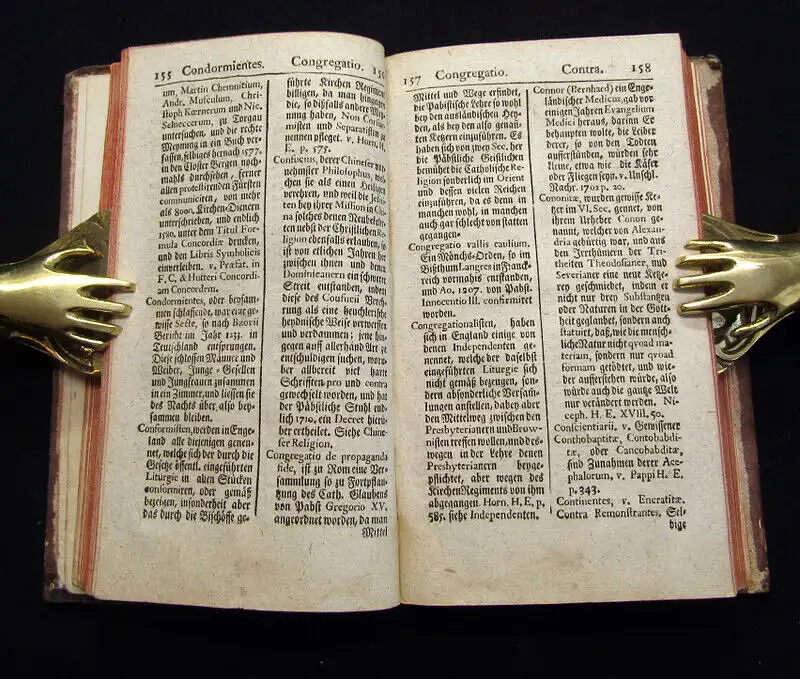 155 Condormientes.
um, Martin Chemnitium,
Andr. Musculum, Chri-
stoph Kœrnerum und Nic.
Selneccerum, zu Torgau
untersuchen, und die rechte
Meynung in ein Buch ver-
fassen, selbiges hernach 1577.
in den Closter Bergen noch-
mahls durchsehen, ferner
allen protestirenden Fürsten
communiciren, von mehr
als 8000. Kirchen-Dienern
unterschreiben, und endlich
1580. unter dem Titul For-
mula Concordiæ drucken,
und den Libris Symbolicis
einverleiben. v. Præfat. in
F. C. & Hutteri Concordi-
am Concordem.
Condormientes, oder beysam-
men schlaffende, war eine ge-
wisse Secte, so nach Bzovii
Bericht im Jahr 1233. in
Teutschland entsprungen.
Diese schlossen Männer und
Weiber, Junge-Gesellen
und Jungfrauen zusammen
in ein Zimmer, und liessen sie
des Nachts über, also bey-
sammen bleiben.
Conformisten, werden in Enge-
land alle diejenigen genen-
net, welche sich der durch die
Gesetze öffentl. eingeführten
Liturgie in allen Stücken
conformiren, oder gemäß
bezeigen, insonderheit aber
das durch die Bischöffe ge-
Congregatio.
führte Kirchen Regiment
billigen, da man hingegen
die, so dißfalls andrer Mey-
nung haben, Non Confor-
misten und Separatisten zu
nennen pfleget. v. Horn. H.
E. p. 575.
Confucius, derer Chineser vor-
nehmster Philosophus, wel-
chen sie als einen Heiligen
verehren, und weil die Jesui-
ten bey ihrer Mission in Chi-
na solches denen Neubekehr-
ten nebst der Christlichen Re-
ligion ebenfalls erlauben, so
ist von etlichen Jahren her
zwischen ihnen und denen
Dominicanern ein schwerer
Streit entstanden, indem
diese des Confucii Vereh-
rung als eine heuchlerische
heydnische Weise verwerffen
und verdammen; jene hin-
gegen auff allerhand Art zu
entschuldigen suchen, worü-
ber allbereit viel harte
Schrifften pro und contra
gewechselt worden, und hat
der Päbstliche Stuhl end-
lich 1710. ein Decret hierü-
ber ertheilet. Siehe Chine-
ser Religion.
Congregatio de propaganda
fide, ist zu Rom eine Ver-
samlung so zu Fortpflan-
tzung des Cath. Glaubens
von Pabst Gregorio XV.
angeordnet worden, da man
Mittel
157 Congregatio.
Mittel und Wege erfindet,
die Päbistische Lehre so wohl
bey den ausländischen Hey-
den, als bey den also genan-
ten Ketzern einzuführen. Es
haben sich von zwey Sec. her
die Päbstliche Geistlichen
bemühet die Catholische Re-
ligion sonderlich im Orient
und dessen vielen Reichen
einzuführen, da es denn in
manchen wohl, in manchen
auch gar schlecht von statten
gegangen.
Congregatio vallis caulium.
Ein Mönchs-Orden, so im
Bißthum Langres in Franck-
reich vormahls entstanden,
und Ao. 1207. von Pabst.
Innocentio III. confirmiret
worden.
Congregationalisten, haben
sich in England einige von
denen Independenten ge-
nennet, welche der daselbst
eingeführten Liturgie sich
nicht gemäß bezeugen, son-
dern absonderliche Versam-
lungen anstellen, dabey aber
den Mittelweg zwischen den
Presbyterianern und Brow-
nisten treffen wollen, und des-
wegen in der Lehre denen
Presbyterianern beyge-
pflichtet, aber wegen des
Kirchen Regiments von ihm
abgegangen. Horn. H. E. p.
585. siehe Independenten.
Contra. 158
Connor (Bernhard) ein Enge-
ländischer Medicus, gab vor
einigen Jahren Evangelium
Medici heraus, darinn Er
behaupten wolte, die Leiber
derer, so von den Todten
aufferstünden, würden sehr
kleine, etwa wie die Käfer
oder Fliegen seyn. v. Unsch.
Nachr. 1702 p. 20.
Cononitæ, wurden gewisse Ke-
tzer im VI. Sec. gennet, von
ihrem Urheber Conon ge-
nannt, welcher von Alexan-
dria gebürtig war, und aus
den Irrthümern der Tri-
theiten Theodosianer, und
Severianer eine neue Ketze-
rey geschmiedet, indem er
nicht nur drey Substangen
oder Naturen in der Gott-
heit geglaubet, sondern auch
statuirt, daß, wie die mensch-
liche Natur nicht qvoad ma-
teriam, sondern nur qvoad
formam getödtet, und wie-
der aufferstehen würde, also
würde auch die gantze Welt
nur verändert werden. Ni-
ceph. H. E. XVIII. 50.
Conscientiarii, v. Gewissener
Conthobaptitæ, Contobabdi-
tæ, oder Cancobabditæ,
sind Zunahmen derer Ace-
phalorum, v. Pappi H. E.
p. 343.
Continentes, v. Encratitæ.
Contra Remonstrantes, Sel-
bige